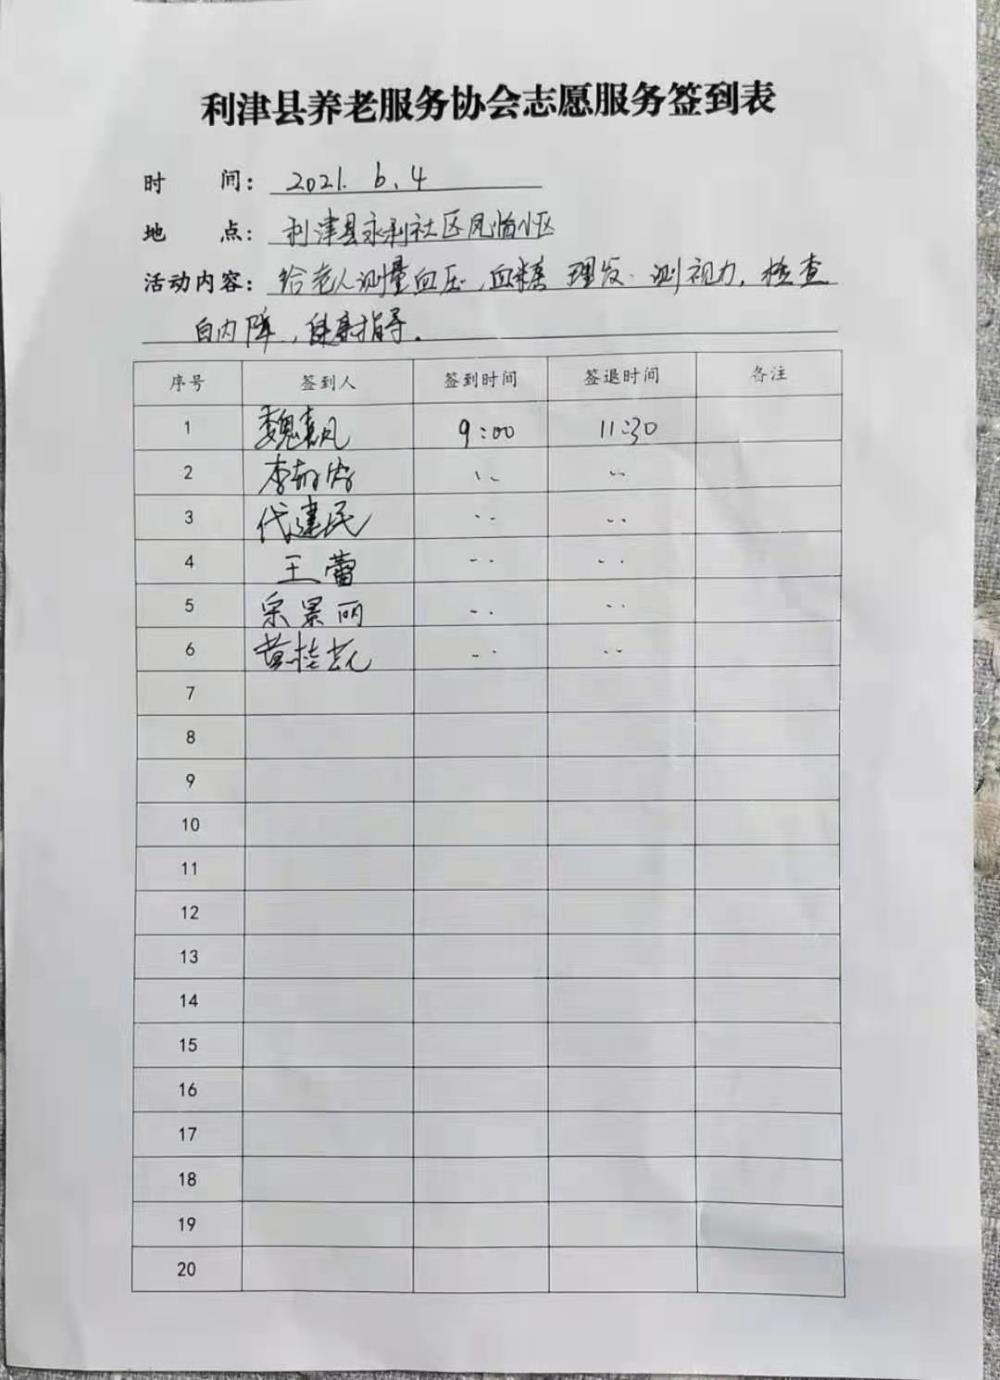 利津县养老服务协会志愿服务签到表
时 间: 2021. 6. 4
地 点: 利津县永利社区凤凰小区
活动内容: 给老人测量血压、血糖 理发. 测视力, 检查
白内障, 健康指导.
序号 签到人 签到时间 签退时间 备注
1 魏春凤 9:00 11:30
2 李
3 代建民
4 王蕾
5 宋景丽
6 黄桂
7
8
9
10
11
12
13
14
15
16
17
18
19
20